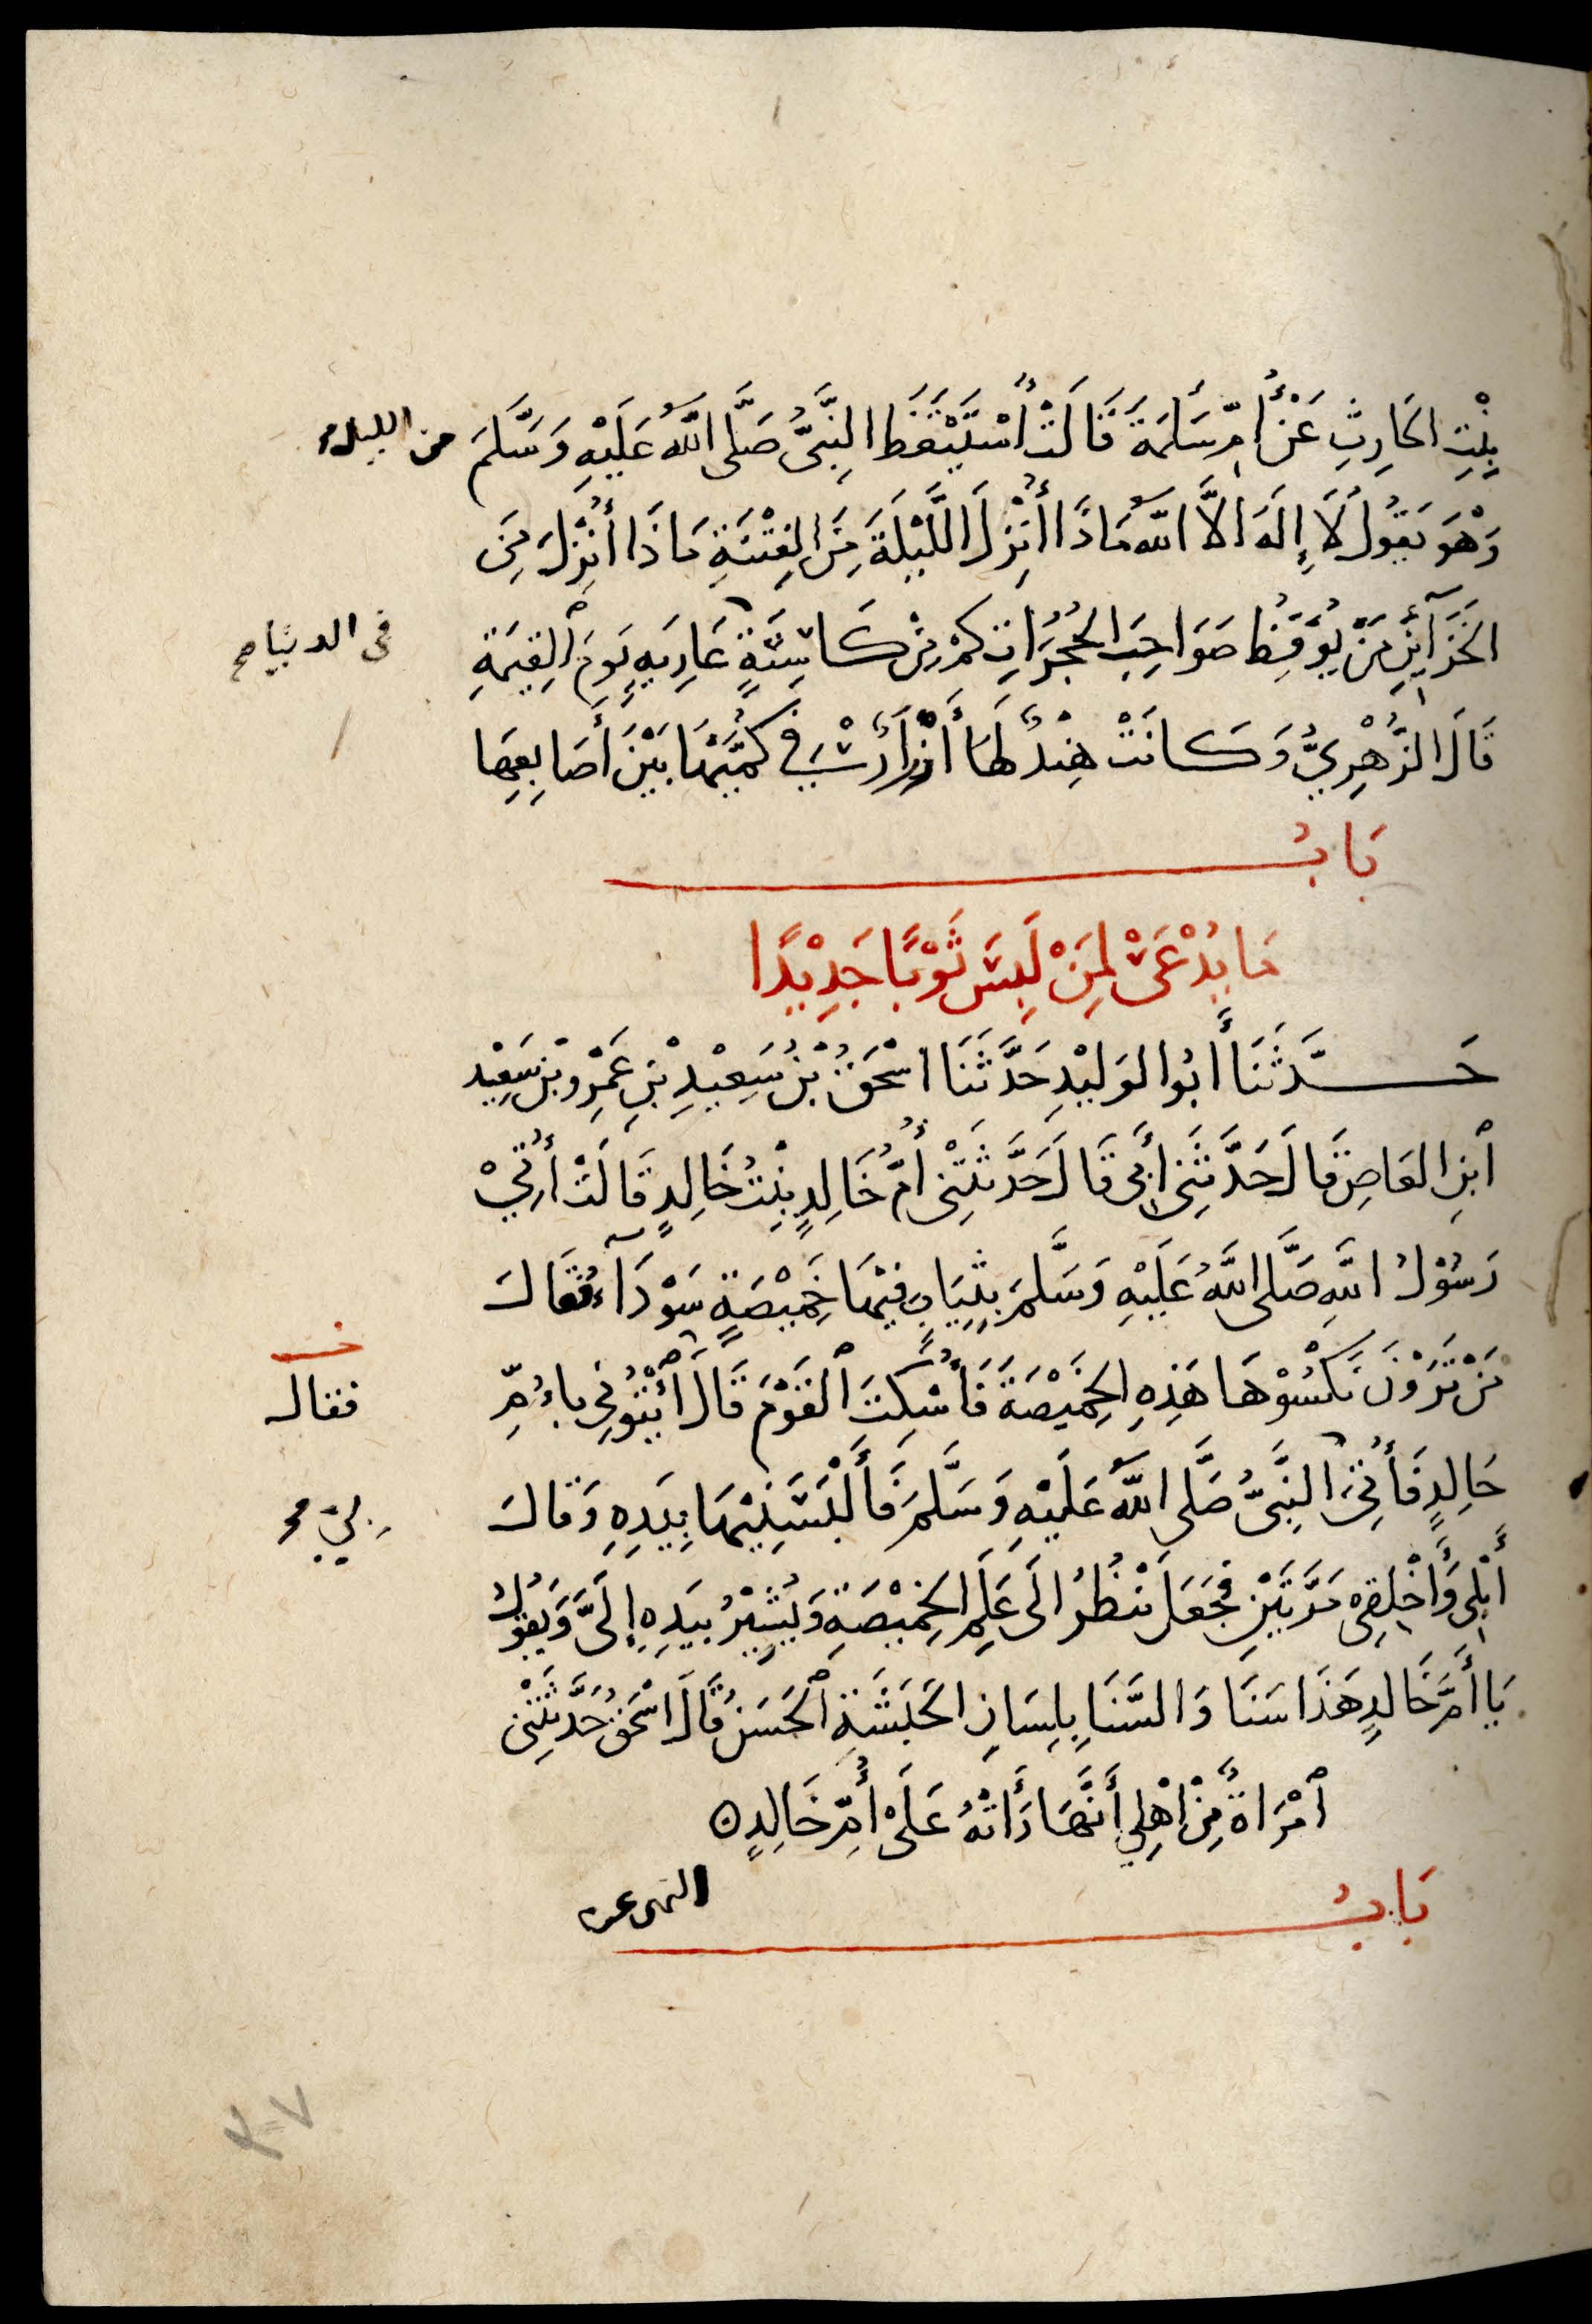 بِنْتِ الحَارِثِ عَنْ أُمِّ سَلَمَةَ قَالَتْ اسْتَيْقَظَ النَّبِيُّ صَلَّى اللَّهُ عَلَيْهِ وَسَلَّمَ من الليل
وَهْوَ يَقُولُ لَا إِلَهَ الَّا اللَّهُ مَاذَا أُنْزِلَ اللَّيْلَةَ مِنَ الفِتْنَةِ مَاذَا أُنْزِلَ مِنَ
الخَزَآئِنِ مَنْ يُوقِظُ صَوَاحِبَ الحُجُرَاتِ كَمْ مِنْ كَاسِيَةٍ عَارِيَةٍ يَوْمَ الْقِيَمَةِ
فى الدنيا صح
قَالَ الزُّهْرِيُّ وَكَانَتْ هِنْدٌ لَهَا أَزْرَارٌ فِي كُمَّيْهَا بَيْنَ أَصَابِعِهَا
بَابُ
مَا يُدْعَى لِمَنْ لَبِسَ ثَوْبًا جَدِيْدًا
حَدَّثَنَا أَبُوا الوَلِيْدِ حَدَّثَنَا اسْحَقُ بْنُ سَعِيْدِ بْنِ عَمْرِو بْنِ سَعِيْدِ
ابْنِ العَاصِ قَالَ حَدَّثَنِى أَبِى قَالَ حَدَّثَتْنِى أُمُّ خَالِدٍ بِنْتُ خَالِدٍ قَالَتْ أُتِيَ
رَسُوْلُ اللَّهِ صَلَّى اللَّهُ عَلَيْهِ وَسَلَّمَ بِثِيَابٍ فِيْهَا خَمِيْصَةٍ سَوْدَآءُ فَقَالَ
مَنْ تَرَوْنَ نَكْسُوْهَا هَذِهِ الخَمِيْصَةَ فَأُسْكِتَ الْقَوْمُ قَالَ ائْتُونِي بِأُمِّ
فقال
خَالِدٍ فَأُتِيَ النَّبِيُّ صَلَّى اللَّهُ عَلَيْهِ وَسَلَّمَ فَأَلْبَسَنِيْهَا بِيَدِهِ وَقَالَ
بي
أَبْلِى وَأَخْلِقِى مَرَّتَيْنِ فَجَعَلَ يَنْظُرُ الَى عَلَمِ الخَمِيْصَةِ وَيُشِيْرُ بِيَدِهِ إِلَىَّ وَيَقُولُ
يَا أُمَّ خَالِدٍ هَذَا سَنَا وَالسَّنَا بِلِسَانِ الحَبَشَةِ الْحَسَنُ قَالَ اسْحَقُ حَدَّثَتْنِى
امْرَأَةٌ مِنْ اهْلِي أَنَّهَا رَأَتْهُ عَلَى أُمِّ خَالِدٍ
بَابُ
النهى عن